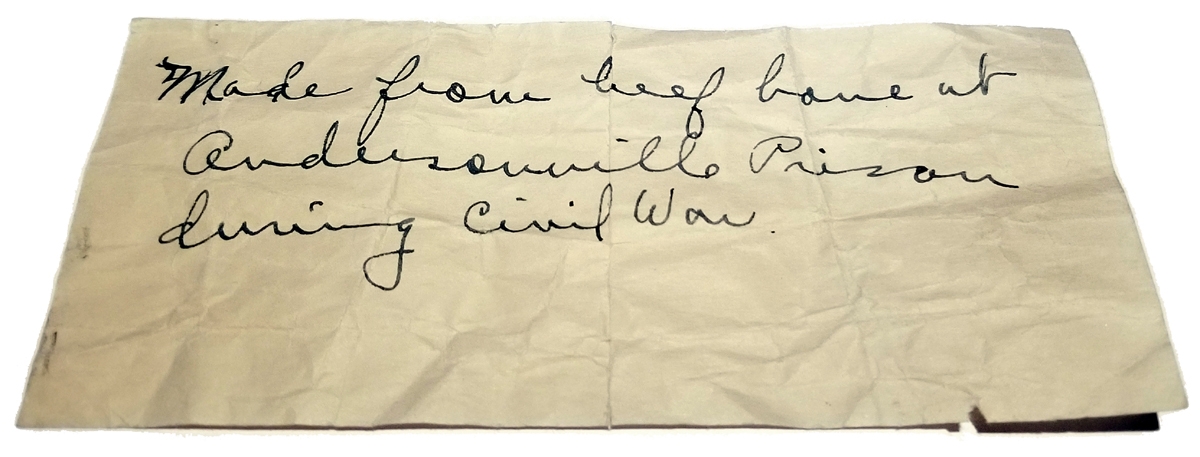 Made from beef bone at
Andersonville Prison
during Civil War.